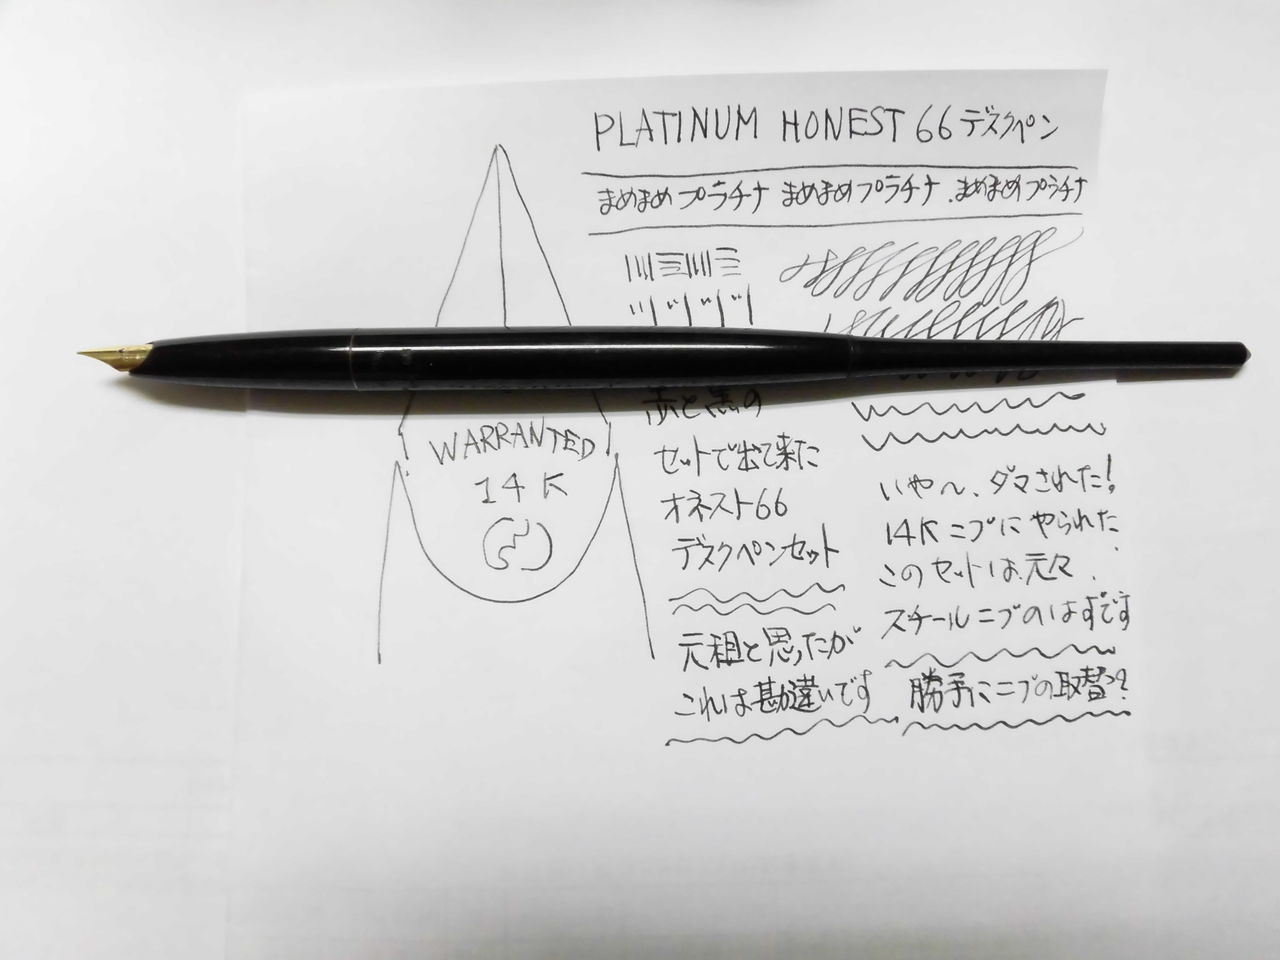 PLATINUM HONEST 66 デスクペン
まめまめプラチナ まめまめプラチナ.まめまめプラチナ
WARRANTED
14K
赤と黒の
セットで出て来た
オネスト66
デスクペンセット
元祖と思ったが
これは勘違いです
いや〜、ダマされた!
14Kニブにやられた.
このセットは元々.
スチールニブのはずです
勝手にニブの取替?